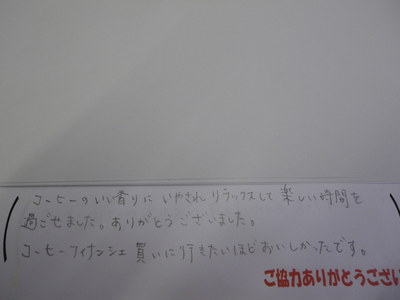 コーヒーのいい香りにいやされリラックスして楽しい時間を
過ごせました。ありがとうございました。
コーヒーフィナンシェ買いに行きたいほどおいしかったです。
ご協力ありがとうござい